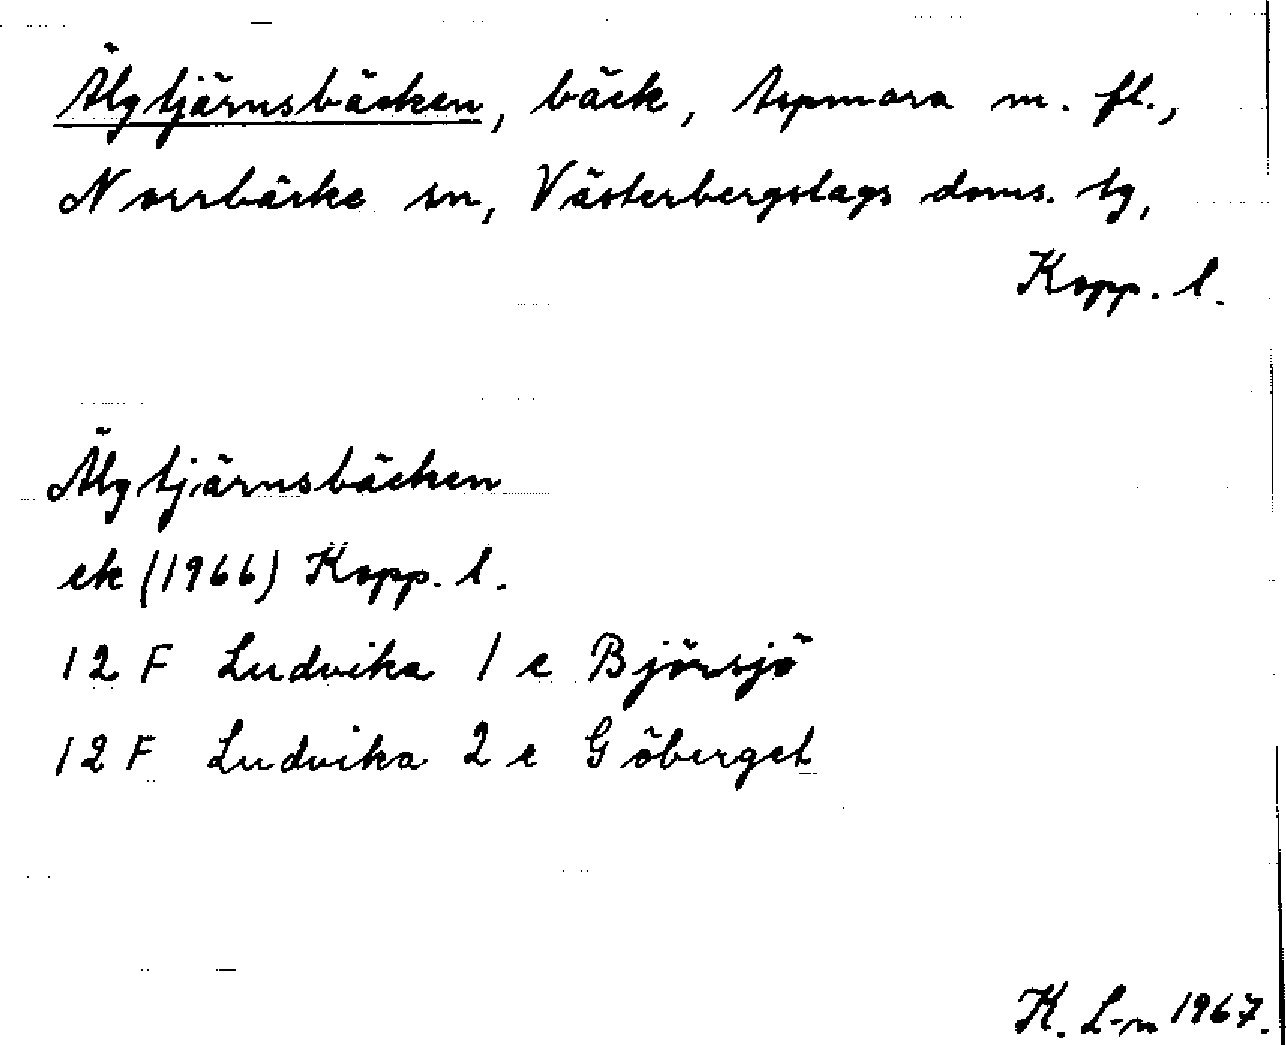 Älgtjärnsbäcken, bäck, Aspmora m. fl.,
Norrbärke sn, Västerbergslags doms. tg,
Kopp. l.
Älgtjärnsbäcken
ek (1966) Kopp. l.
12 F Ludvika 1 e Björsjö
12 F Ludvika 2 e Göberget
K. L-m 1967.